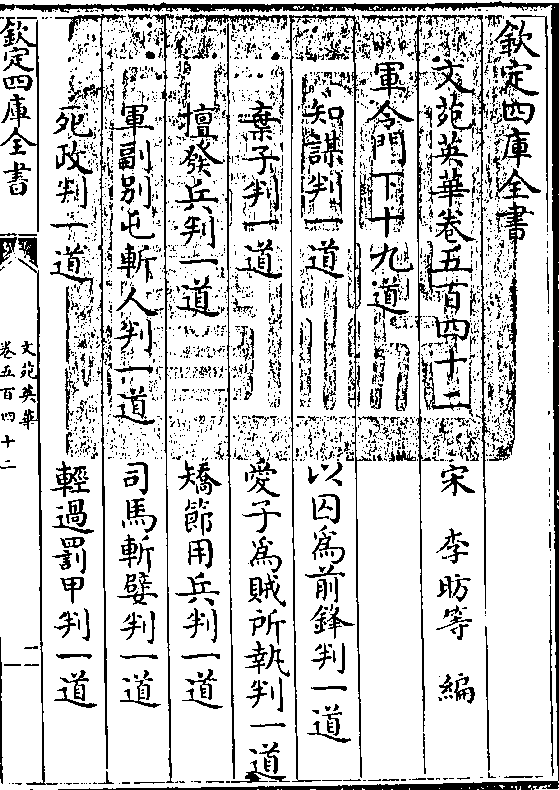 欽定四庫全書
文苑英華卷五百四十二
宋 李昉等 編
軍令門下十九道
知謀判一道 以囚為前鋒判一道
棄子判一道 愛子為賊所執判一道
壇發兵判一道 矯節用兵判一道
軍副別屯斬人判一道 司馬斬嬖判一道
死政判一道 輕過罰甲判一道
欽定四庫全書
文苑英華
卷五百四十二
一